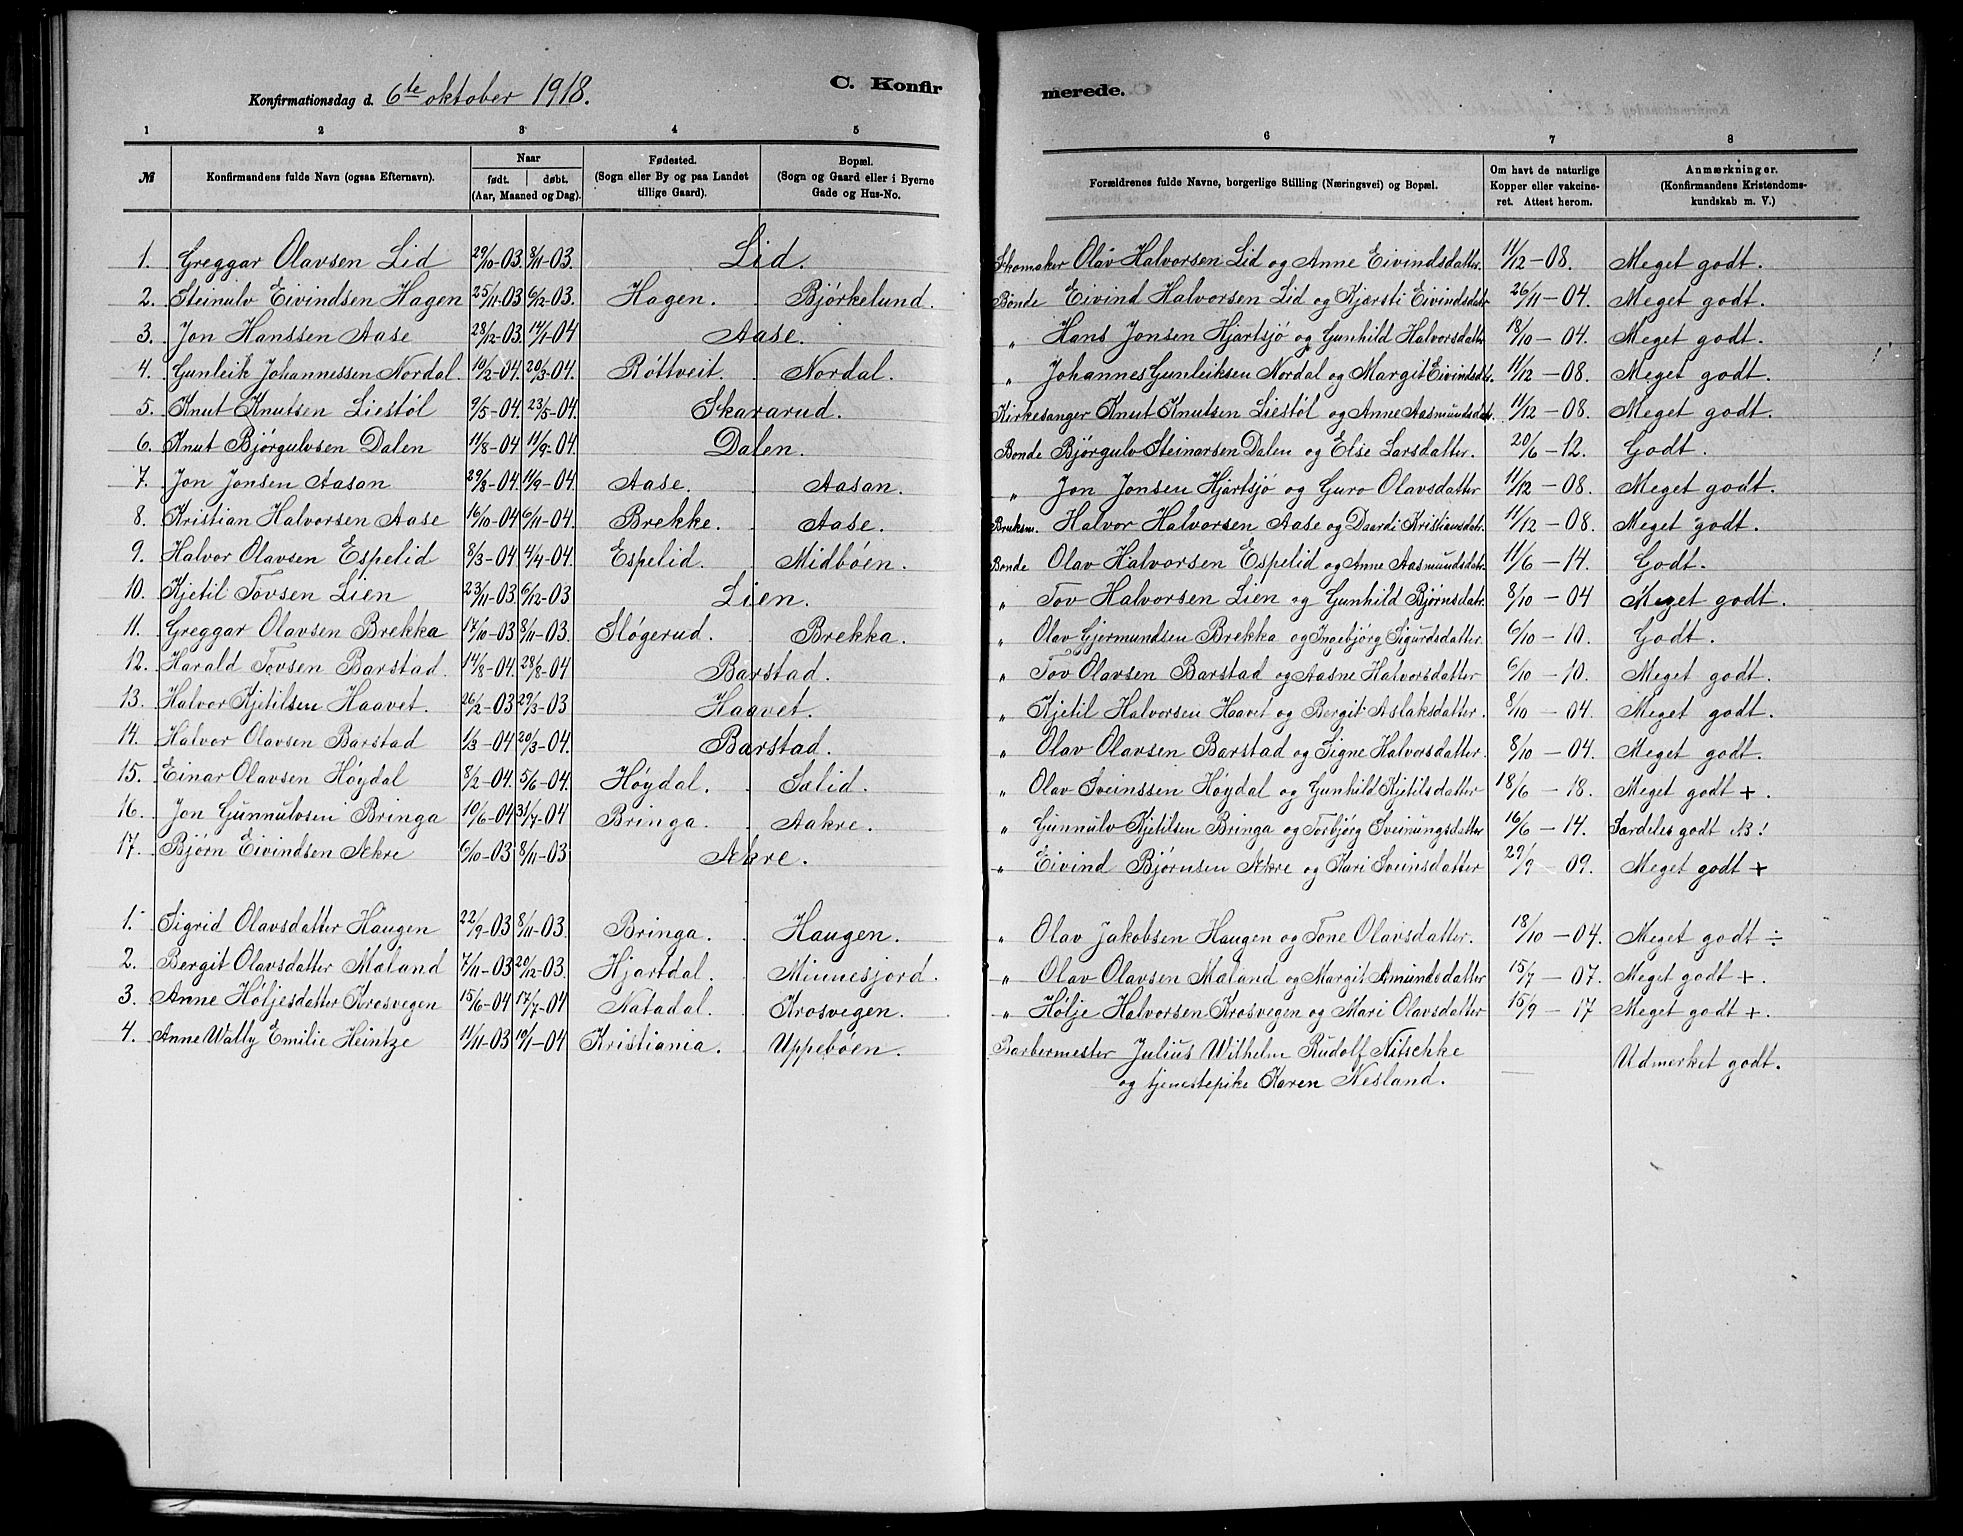 Konfirmationsdag d. 6te oktober 1918. C. Konfirmerede.
1 2 3 4 5 6 7 8
№ Konfirmandens fulde Navn (ogsaa Efternavn). Naar født. døbt. (Aar, Maaned og Dag). Fødested. (Sogn eller By og paa Landet tillige Gaard). Bopæl. (Sogn og Gaard eller i Byerne Gade og Hus-No. Forældrenes fulde Navne, borgerlige Stilling (Næringsvei) og Bopæl. Om havt de naturlige Kopper eller vakcineret. Attest herom. Anmærkninger. (Konfirmandens Kristendomskundskab m. V.)
1. Greggar Olavsen Lid 29/10-03. 8/11-03. Lid. Skomaker Olav Halvorsen Lid og Anne Eivindsdatter. 11/12-08. Meget godt.
2. Steinulv Eivindsen Hagen 25/11-03 6/12-03. Hagen. Bjørkelund. Bonde Eivind Halvorsen Lid og Kjærsti Eivindsdatr 26/11-04. Meget godt.
3. Jon Hanssen Aase 28/12-03. 17/1-04 Aase. " Hans Jonsen Hjartsjø og Gunhild Halvorsdatter 18/10-04. Meget godt.
4. Gunleik Johannessen Nordal. 10/2-04. 20/3-04. Røttveit. Nordal. " Johannes Gunleiksen Nordal og Margit Eivindsdtr. 11/12-08. Meget godt.
5. Knut Knutsen Liestøl 9/5-04. 23/5-04. Skararud. Kirkesanger Knut Knutsen Liestøl og Anne Aasmundsdatr. 11/12-08. Meget godt.
6. Knut Bjørgulvsen Dalen 11/8-04 11/9-04. Dalen. Bonde Bjørgulv Steinarsen Dalen og Else Larsdatter. 20/6-12. Godt.
7. Jon Jonsen Aasan 29/8-04. 11/9-04. Aase. Aasan. " Jon Jonsen Hjartsjø og Guro Olavsdatter 11/12-08. Meget godt.
8. Kristian Halvorsen Aase 16/10-04 6/11-04. Brekke. Aase. Bruksm. Halvor Halvorsen Aase og Daardi Kristiansdatr. 11/12-08. Meget godt.
9. Halvor Olavsen Espelid 8/3-04. 4/4-04. Espelid. Midbøen. Bonde Olav Halvorsen Espelid og Anne Aasmundsdatr. 11/6-14. Godt.
10. Kjetil Tovsen Lien 23/11-03 6/12-03 Lien. " Tov Halvorsen Lien og Gunhild Bjørnsdatr. 8/10-04 Meget godt.
11. Greggar Olavsen Brekka 17/10-03. 8/11-03. Sløgerud. Brekka. " Olav Gjermundsen Brekka og Ingebjørg Sigurdsdatter. 6/10-10. Godt.
12. Harald Tovsen Barstad. 14/8-04. 28/8-04 Barstad. " Tov Olavsen Barstad og Aasne Halvorsdatter 6/10-10. Meget godt.
13. Halvor Kjetilsen Haavet. 26/2-03 29/3-03 Haavet. " Kjetil Halvorsen Haavet og Bergit Aslaksdatter. 8/10-04. Meget godt.
14. Halvor Olavsen Barstad 1/3-04 20/3-04. Barstad. " Olav Olavsen Barstad og Signe Halvorsdatter. 8/10-04. Meget godt.
15. Einar Olavsen Høydal 8/2-04. 5/6-04. Høydal. Sælid. " Olav Sveinssen Høydal og Gunhild Kjetilsdatter 18/6-18. Meget godt +.
16. Jon Gunnulvsen Bringa 10/6-04 31/7-04 Bringa. Aakre. " Gunnulv Kjetilsen Bringa og Torbjørg Sveinungsdatter 16/6-14. Særdeles godt NB!
17. Bjørn Eivindsen Ækre 6/10-03 8/11-03 Ækre. " Eivind Bjørnsen Ækre og Kari Sveinsdatter 29/9-09. Meget godt +
1. Sigrid Olavsdatter Haugen 22/9-03 8/11-03. Bringa. Haugen. " Olav Jakobsen Haugen og Tone Olavsdatter. 18/10-04. Meget godt ÷
2. Bergit Olavsdatter Mæland 7/11-03 20/12-03. Hjartdal. Minnesjord. " Olav Olavsen Mæland og Margit Amundsdatter 15/7-07. Meget godt +.
3. Anne Høljesdatter Krosvegen 15/6-04 17/7-04 Natadal. Krosvegen. " Hølje Halvorsen Krosvegen og Mari Olavsdatter 15/9-17 Meget godt +.
4. Anne Wally Emilie Heintze 11/11-03 10/1-04 Kristiania. Uppebøen. Barbermester Julius Wilhelm Rudolf Nitschke — Udmerket godt.
og tjenestepike Karen Nesland.